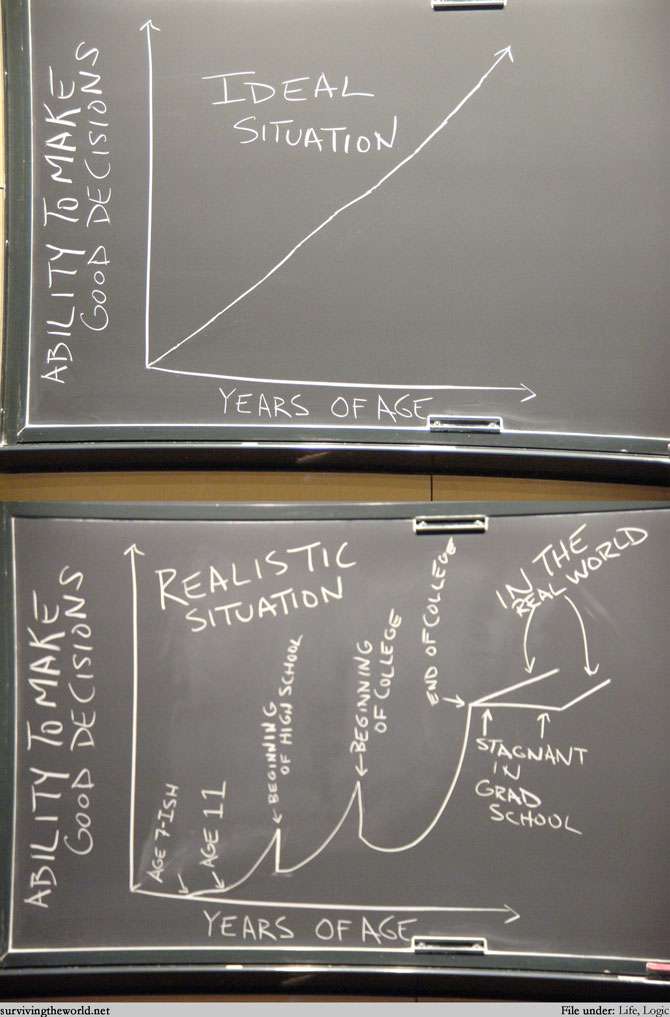 ABILITY TO MAKE
GOOD DECISIONS
IDEAL
SITUATION
YEARS OF AGE
ABILITY TO MAKE
GOOD DECISIONS
REALISTIC
SITUATION
AGE 7-ISH
AGE 11
BEGINNING
OF HIGH SCHOOL
BEGINNING
OF COLLEGE
END OF COLLEGE
IN THE
REAL WORLD
STAGNANT
IN
GRAD
SCHOOL
YEARS OF AGE
survivingtheworld.net
File under: Life, Logic